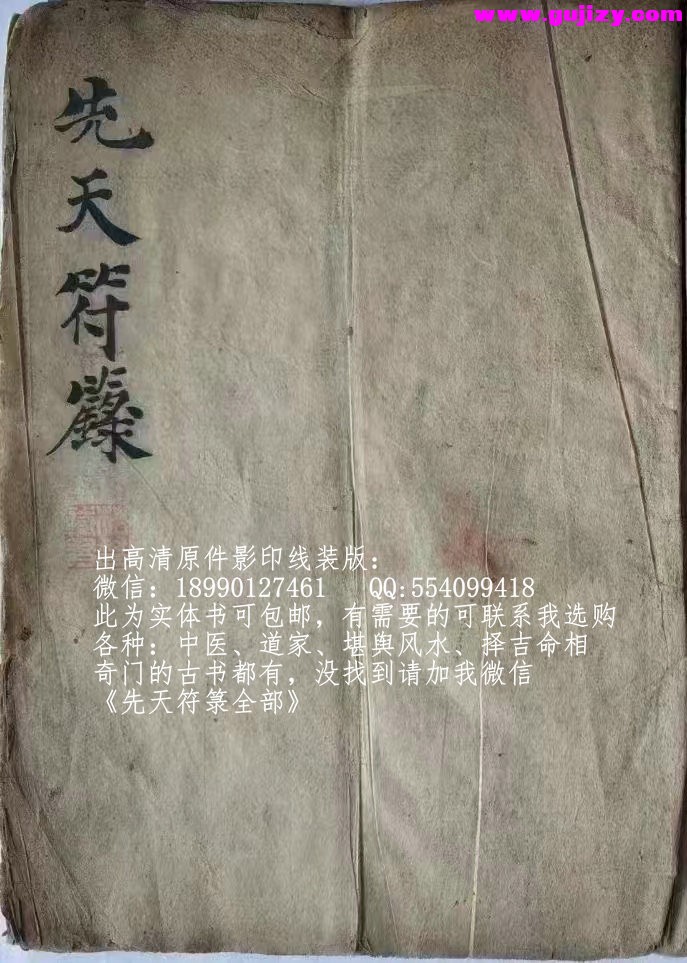 www.gujizy.com
先天符籙
出高清原件影印线装版：
微信：18990127461 QQ:554099418
此为实体书可包邮，有需要的可联系我选购
各种：中医、道家、堪舆风水、择吉命相
奇门的古书都有，没找到请加我微信
《先天符箓全部》